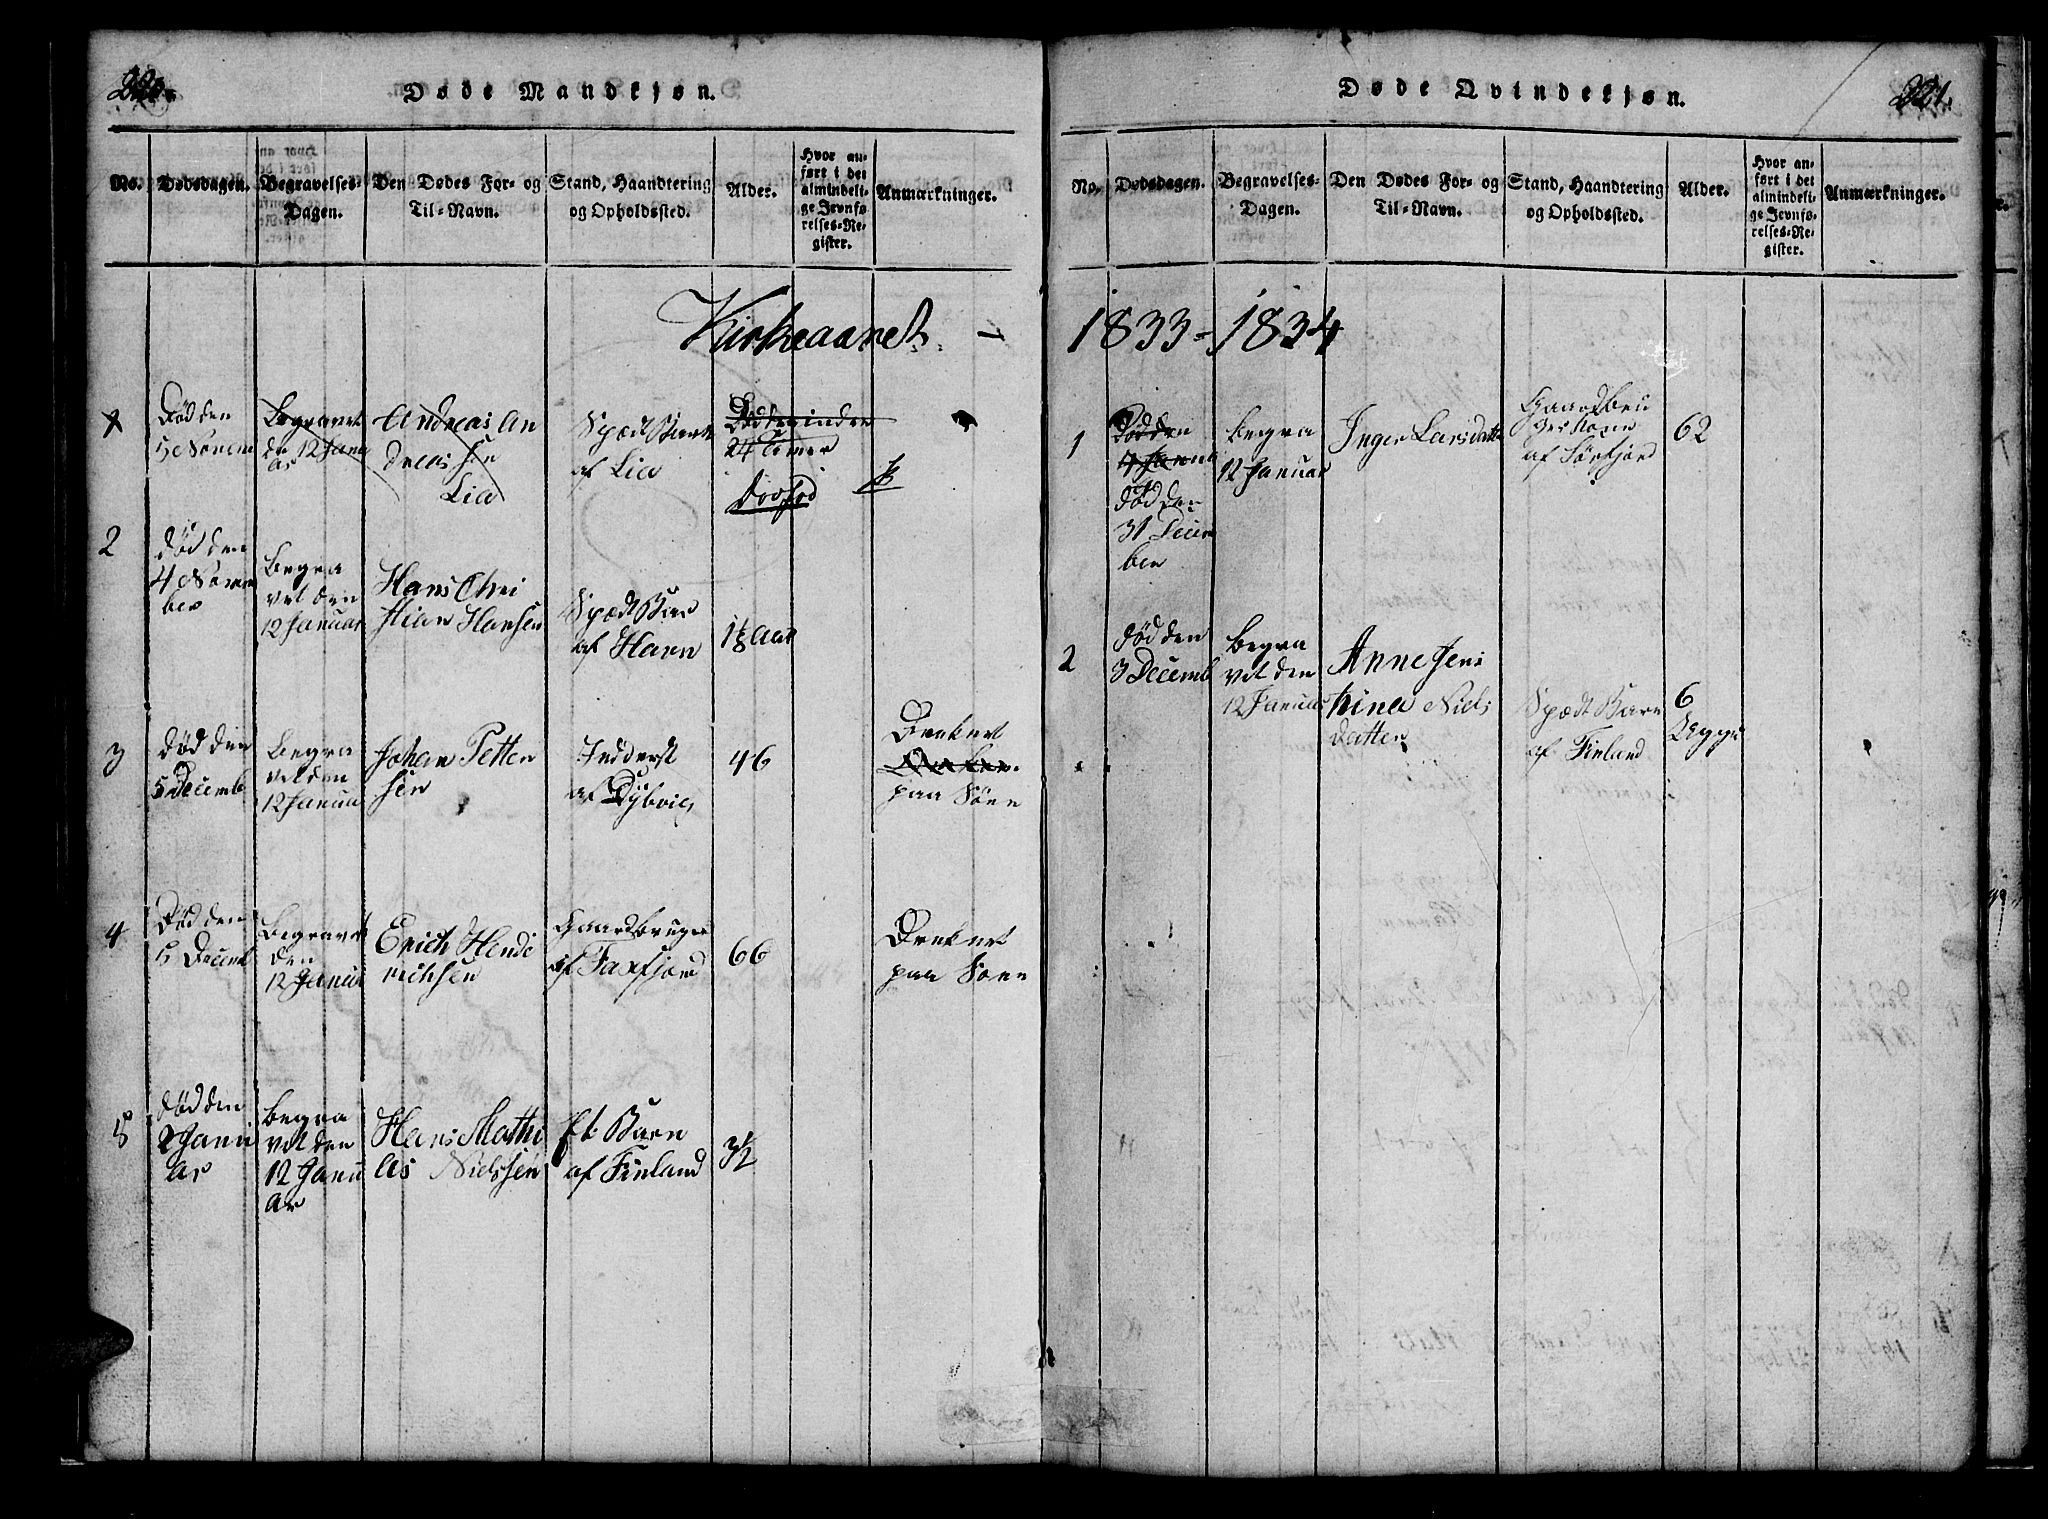 220.
Døde Mandkjøn.
No.
Dødsdagen.
Begravelses-
Dagen.
Den Dødes For- og
Til-Navn.
Stand, Haandtering
og Opholdssted.
Alder.
Hvor an-
ført i det
almindeli-
ge Jevnfø-
relses-Re-
gister.
Anmærkninger.
Kirkeaaret
1
Død den
5 Novem
Begravet
den 12 Janu
ar
Andreas An
dreas sen
Lia
Spædt Barn
af Lia
Død mindre
24 Timer
Dødfød
2
Død den
4 Novem
ber
Begra
vet den
12 Januar
Hans Chri
stian Hansen
Spædt Bar
af Havn
1⅛ Aar
3
Død den
5 Decemb
Begra
vet den
12 Janua
Johan Petter
sen
Inderst
af Dybvig
46
Druknet
paa Søen
4
Død den
5 Decemb
Begravet
den
12 Januar
Erich Hend
richsen
Gaardbruger
af Faxfjord
66
Druknet
paa Søen
5
Død den
2 Janu
ar
Begra
vet den
12 Janu
ar
Hans Mathi
as Nielssen
Et Barn
af Finland
3½
221.
Døde Qvindekjøn.
No.
Dødsdagen.
Begravelses-
Dagen.
Den Dødes For- og
Til-Navn.
Stand, Haandtering
og Opholdssted.
Alder.
Hvor an-
ført i det
almindeli-
ge Jevnfø-
relses-Re-
gister.
Anmærkninger.
1833-1834
1
Død den
Død den
31 Decem
ber
Begra
12 Januar
Inger Larsdatter
Gaardbru
gerkone
af Sørfjord
62
2
Død den
3 Decemb
Begra
vet den
12 Januar
Anne Jens
kina Niels
datter
Spædt Barn
af Finland
6
Uger